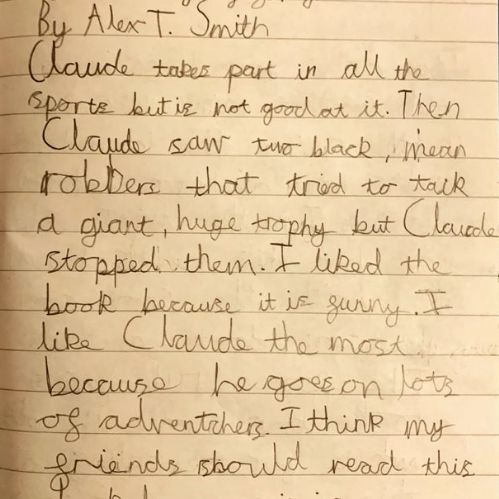 By Alex T. Smith
Claude takes part in all the
sports but is not good at it. Then
Claude saw two black, mean
robbers that tried to taik
a giant, huge trophy but Claude
stopped them. I liked the
book because it is funny. I
like Claude the most
because he goes on lots
of adventchers. I think my
friends should read this